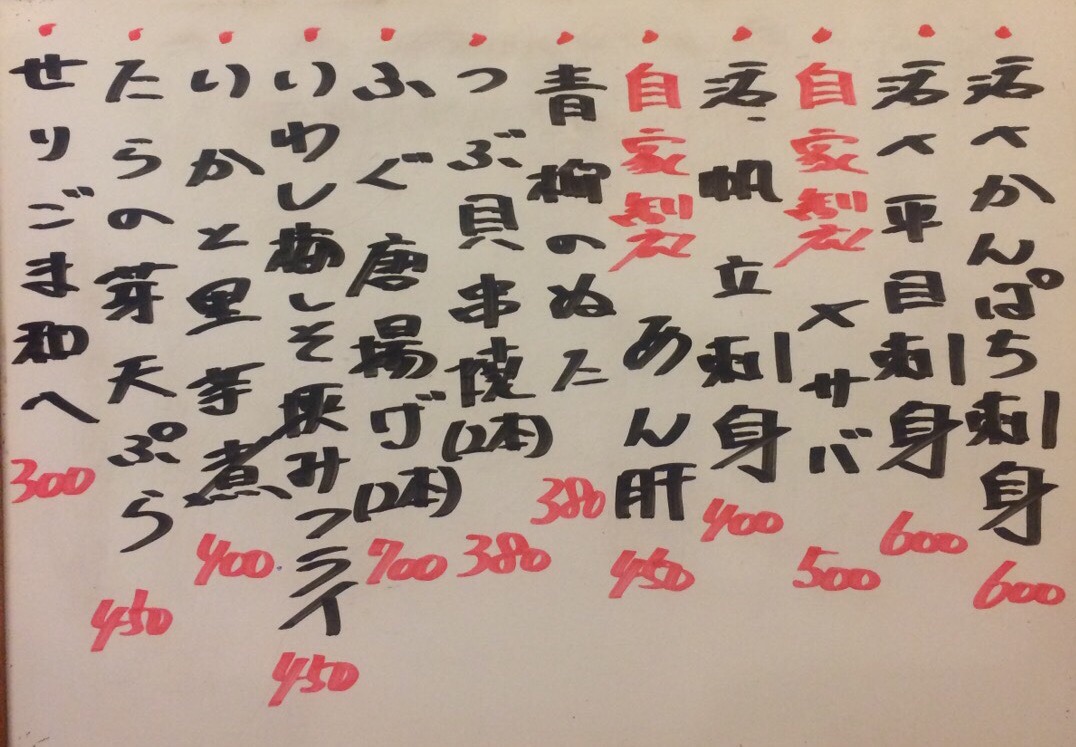 活〆かんぱち刺身 600
活〆平目刺身 600
自家製 〆サバ 500
活帆立刺身 400
自家製 あん肝 450
青柳のぬた 380
つぶ貝串焼(2本) 380
ふぐ唐揚げ(2本) 700
いわし梅しそ挟みフライ 450
いかと里芋煮 400
たらの芽天ぷら 450
せりごま和へ 300